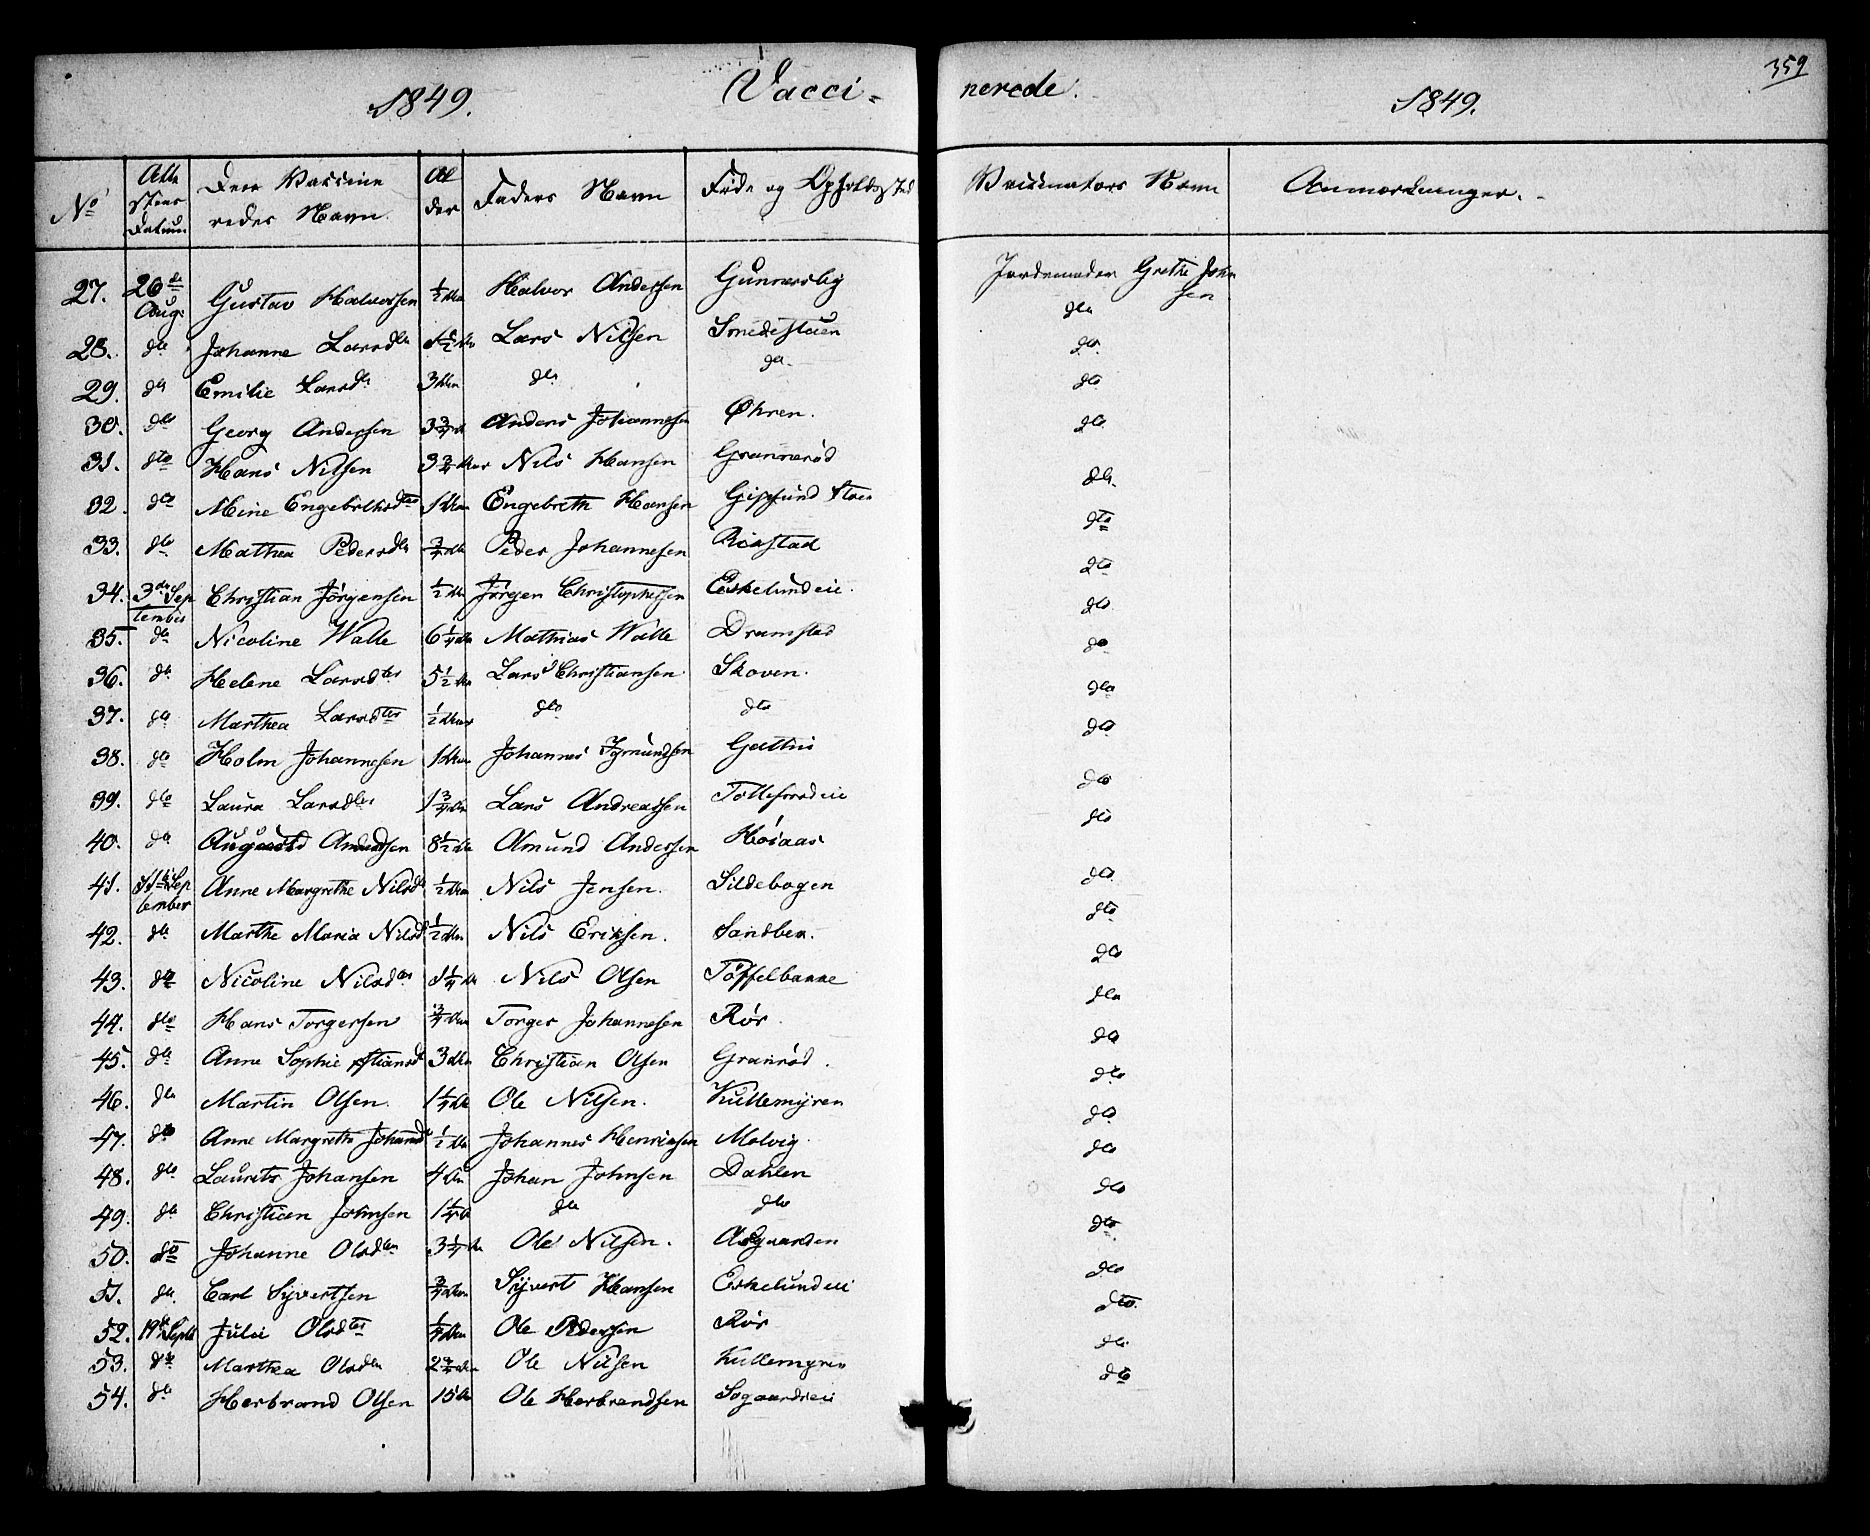 359
1849. Vacci- nerede. 1849.
No Atte stens Datum Den Vaccine redes Navn. Al der Faders Navn Føde og Opholdssted Vaccinators Navn Anmærkninger.
27. 26de Aug: Gustav Halvorsen ½ Halvor Andersen Gunnersby Jordemoder Grethe John sen
28. do Johanne Larsdtr 1½ Lars Nilsen Smedstuen do
29. do Emilie Larsdtr 3 do do do
30. do Georg Andersen 3¾ Anders Johannesen Øhren. do
31. dto Hans Nilsen 3¾ Nils Hansen Grannerød do
32. do Mine Engebrethsdtr 1 Engebreth Hansen do
33. dto Mathea Pedersdtr ¾ Peder Johannesen dto
34. 3de Sep tember Christian Jörgensen ½ Jörgen Christophersen Eskelundeie. dto
35. do Nicoline Walle 6¼ Mathias Walle Dramstad do
36. do Helene Larsdter 5½ Lars Christiansen Skoven. do
37. do Marthea Larsdter ½ dto dto do
38. do Holm Johannesen 1 Johannes Gathus do
39. do Laura Larsdtr 1¾ Lars Andreassen do
40. do August Amundsen 8½ Amund Andersen do
41. 11te Sep tember Anne Margrethe Nilsd ½ Nils Jensen. Sildebogen do
42. do Marthe Maria Nilsd ½ Nils Eriksen. Sandben. dto
43. do Nicoline Nilsdtr 1¼ Nils Olsen Töffelbakke do
44. do Hans Torgersen ¾ Torger Johannesen Rör. do
45. do Anne Sophie xstiansd 3 Christian Olsen Granrød. do
46. do Martin Olsen. 1¼ Ole Nilsen. Kullemyren do
47. do Anne Margrethe Johansd ½ Johannes Henriksen Molvig. do
48. do Laurits Johansen 4 Johan Johnsen Dahlen do
49. do Christian Johnsen 1¼ do do do
50. do Johanne Olsdtr 3¼ Ole Nilsen. Aasgaarden do
51. do. Carl Syvertsen ¾ Syvert Hansen Eskelundeie do
52. 19de Septb Julie Olsdter ¼ Ole Pedersen Rör dto.
53. do Marthea Olsdtr 2¾ Ole Nilsen Kullemyren do
54. do Herbrand Olsen 15 Ole Herbrandsen Sogaardseie do